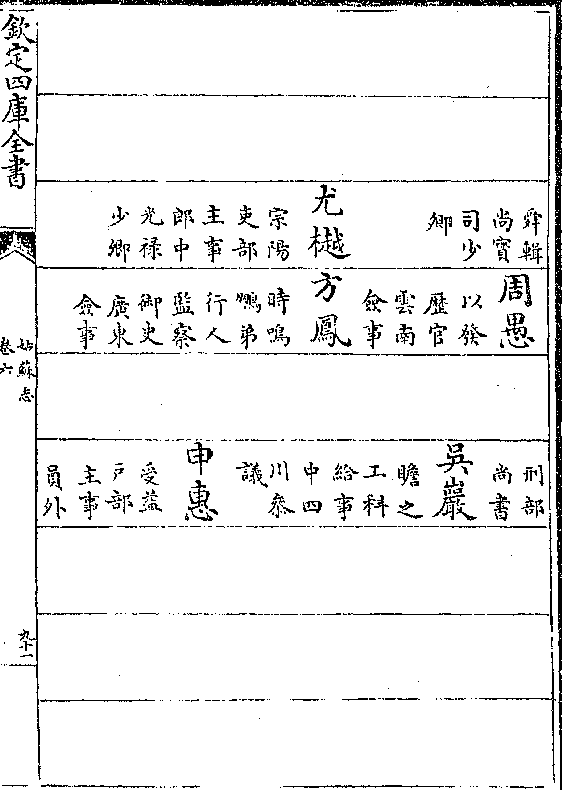 舜輯
尚寶
司少
卿
尤樾
宗陽
吏部
主事
郎中
光禄
少卿
周愚
以發
歴官
雲南
僉事
方鳳
時鳴
鵬弟
行人
監察
御史
廣東
僉事
刑部
尚書
吳巖
瞻之
工科
給事
中四
川叅
議
申惠
受益
户部
主事
員外
欽定四庫全書
姑蘇志
卷六
九十一